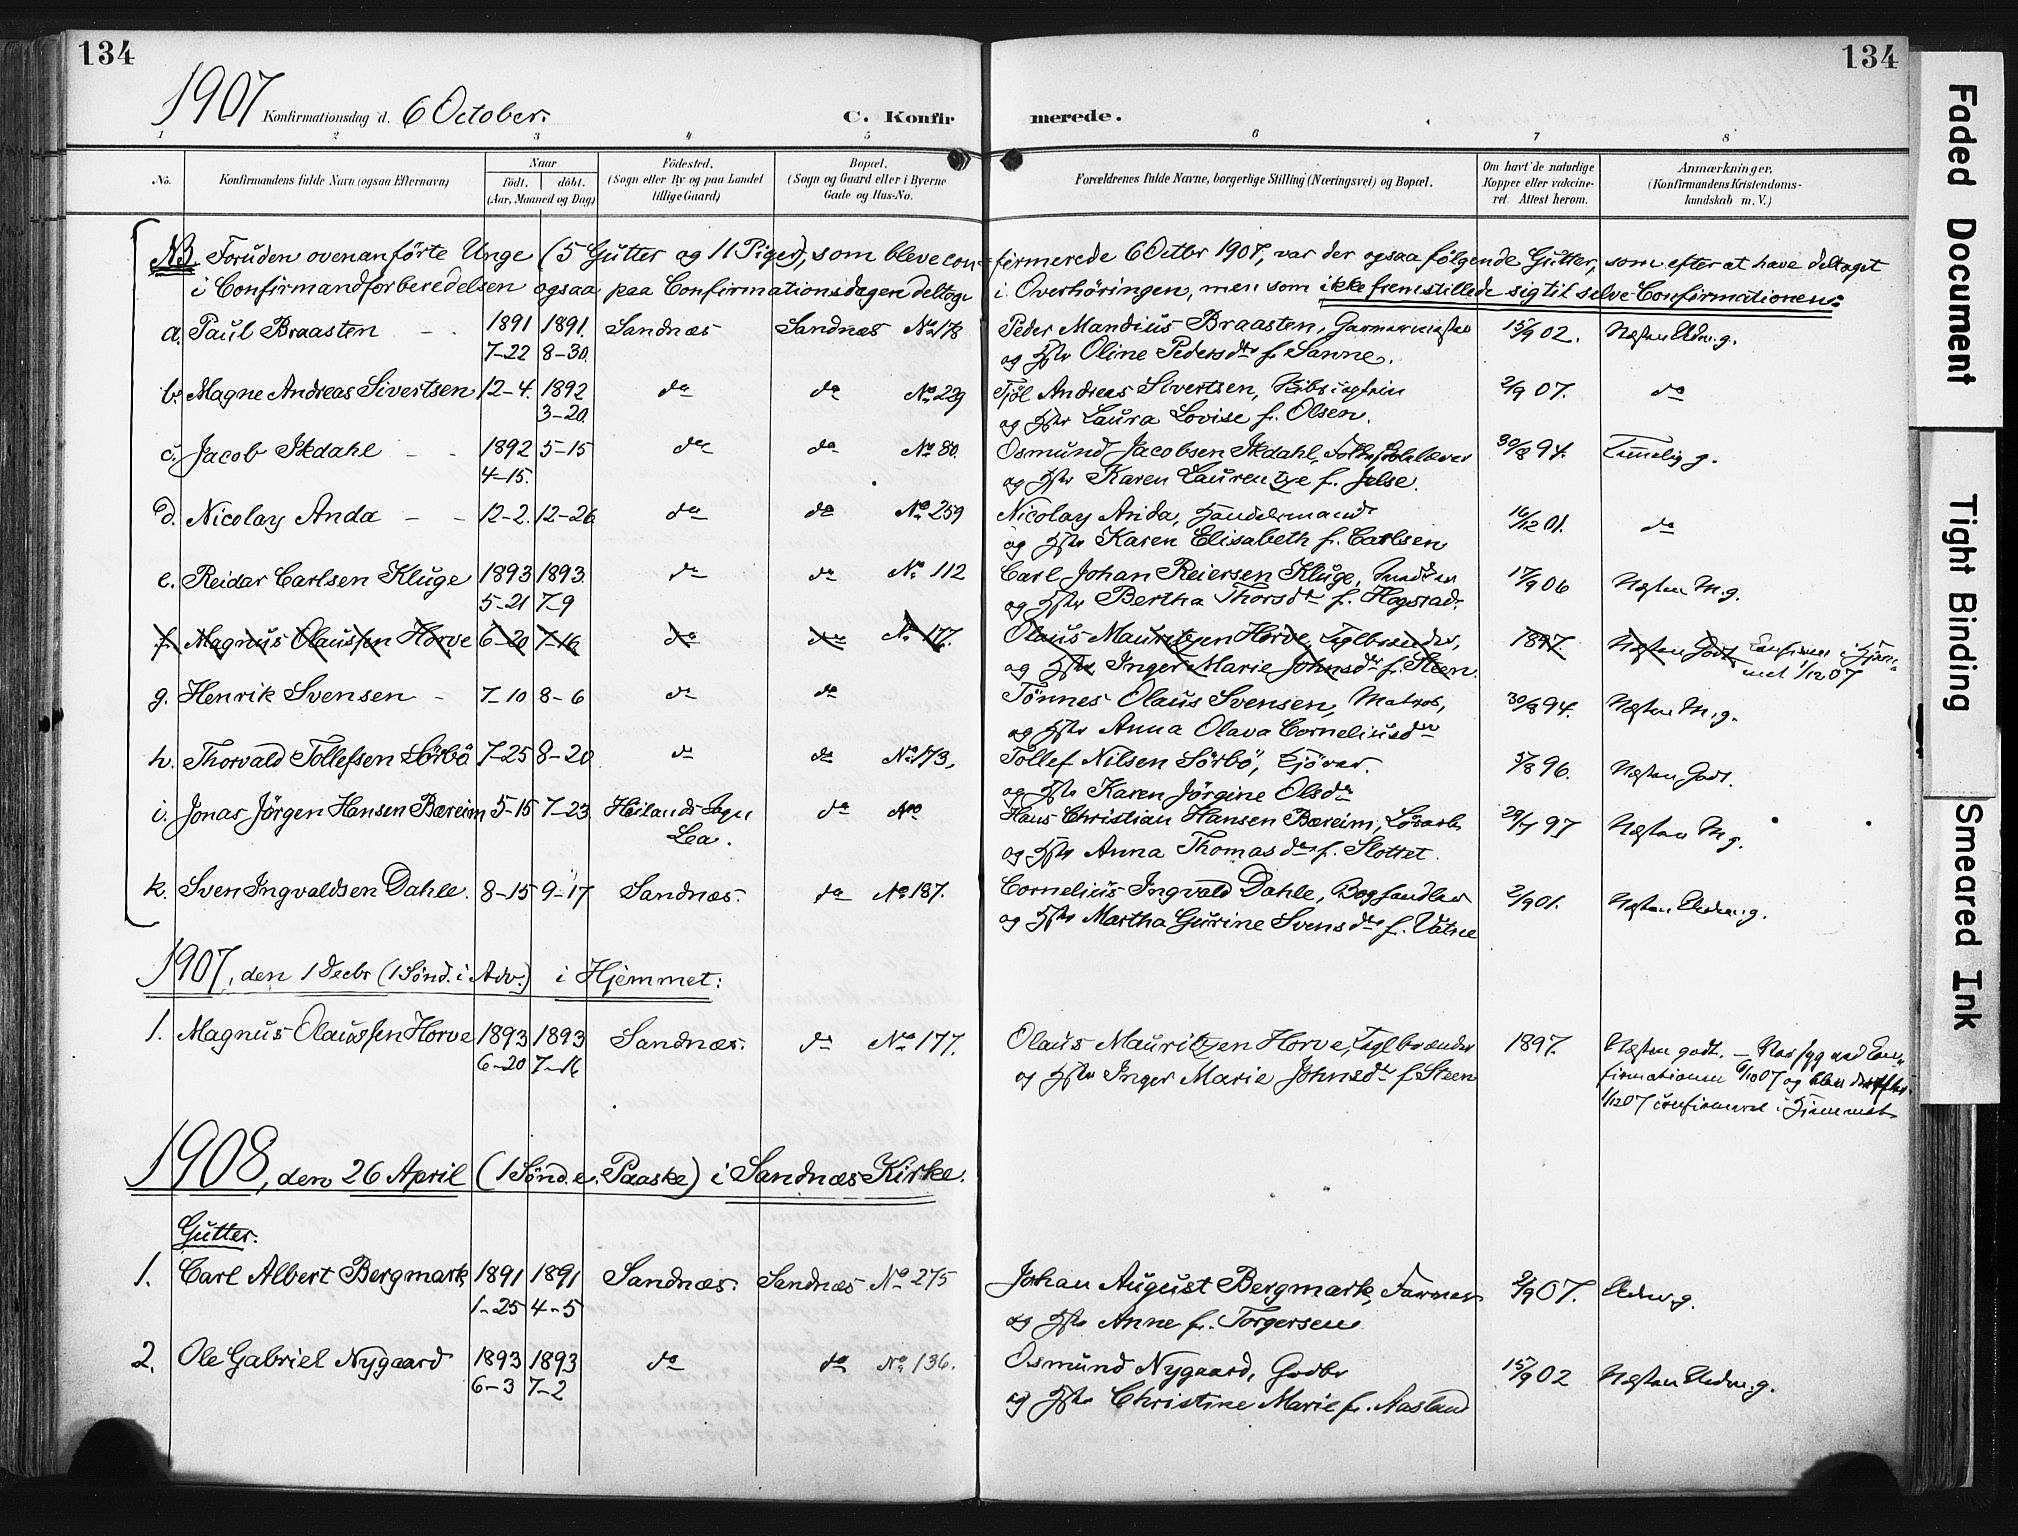 134
134
1907 Konfirmationsdag d. 6 October.
C. Konfirmerede.
1 2 3 4 5 6 7 8
No. Konfirmandens fulde Navn (ogsaa Efternavn)
Naar født. døbt. (Aar, Maaned og Dag)
Fødested. (Sogn eller By og paa Landet tillige Gaard)
Bopæl. (Sogn og Gaard eller i Byerne Gade og Hus-No.
Forældrenes fulde Navne, borgerlige Stilling (Næringsvei) og Bopæl.
Om havt de naturlige Kopper eller vakcineret. Attest herom.
Anmærkninger. (Konfirmandens Kristendomskundskab m. V.)
NB. Foruden ovenanførte Unge (5 Gutter og 11 Piger), som bleve confirmerede 6 Octbr 1907, var der ogsaa følgende Gutter, som efter at have deltaget
i Confirmandforberedelsen ogsaa paa Confirmationsdagen deltoge i Overhøringen, men som ikke fremstillede sig til selve Confirmationen:
a. Paul Braasten - - 1891 1891. Sandnæs Sandnæs No 178 Peder Mandius Braasten, Garvermester 15/9 02. Næsten Udm. g.
7-22 8-30. og Hstr Oline Pedersdtr f. Sanne.
b. Magne Andreas Sivertsen 12-4. 1892 do do No 239 Tjøl Andreas Sivertsen, 2/9 07. do
3-20. og Hstr Laura Lovise f. Olsen.
c. Jacob Skdahl - - 1892 5-15 do do No 80. Osmund Jacobsen Skdahl, 30/8 94. Temelig g.
4-15. og Hstr Karen Laurentze f. Jelse.
d. Nicolay Anda - - 12-2. 12-26 do do No 259 Nicolay Anda, Handelsmand 16/12 01. do
og Hstr Karen Elisabeth f. Carlsen
e. Reidar Carlsen Kluge 1893 1893. do do No. 112 Carl Johan Reiersen Kluge, 17/9 06 Næsten M. g.
5-21 7-9 og Hstr Bertha Thorsdtr f. Hogstad.
f. Magnus Olaussen Horve 6-20 7-16 do do No 177. Olaus Mauritzen Horve, Teglbrænder, 1897. Næsten Godt. Confirm. i Hjem-
og Hstr Inger Marie Johnsdtr f. Steen. met 1/12 07
g. Henrik Svensen - 7-10 8-6 do do Tønnes Olaus Svensen, Matros, 30/8 94. Næsten M. g.
og Hstr Anna Olava Corneliusdtr
h. Thorvald Tollefsen Sörbö 7-25 8-20 do do No 173. Tollef Nilsen Sörbö, 5/8 96. Næsten Godt.
og Hstr Karen Jörgine Olsdtr
i. Jonas Jörgen Hansen Bæreim 5-15 7-23 Høilands Sogn do No Hans Christian Hansen Bæreim, 29/7 97 Næsten M g.
Lea. og Hstr Anna Thomasdtr f. Slottet.
k. Sven Ingvaldsen Dahle. 8-15 9-17 Sandnæs. do No 187. Cornelius Ingvald Dahle, Boghandler 2/9 01. Næsten Udm. g.
og Hstr Martha Gurine Svensdtr f. Vatne
1907, den 1 Decbr (1 Sønd. i Adv.) i Hjemmet:
1. Magnus Olaussen Horve 1893 1893 Sandnæs. do No 177. Olaus Mauritzen Horve, Teglbrænder 1897. Næsten godt. - Var syg ved Con-
6-20 7-16 og Hstr Inger Marie Johnsdtr f. Steen firmationen 6/10 07 og blev derefter
1/12 07 confirmeret i Hjemmet
1908, den 26 April (1 Sønd. e. Paaske) i Sandnæs Kirke.
Gutter.
1. Carl Albert Bergmark 1891 1891 Sandnæs. Sandnæs No 275 Johan August Bergmark, Farmer 2/9 07. Udm. g.
1-25 4-5 og Hstr Anne f. Torgersen
2. Ole Gabriel Nygaard 1893 1893 do do No 136. Osmund Nygaard, Gødbr 15/9 02 Næsten Udm. g.
6-3 7-2 og Hstr Christine Marie f. Aasland
Faded Document
Tight Binding
Smeared Ink